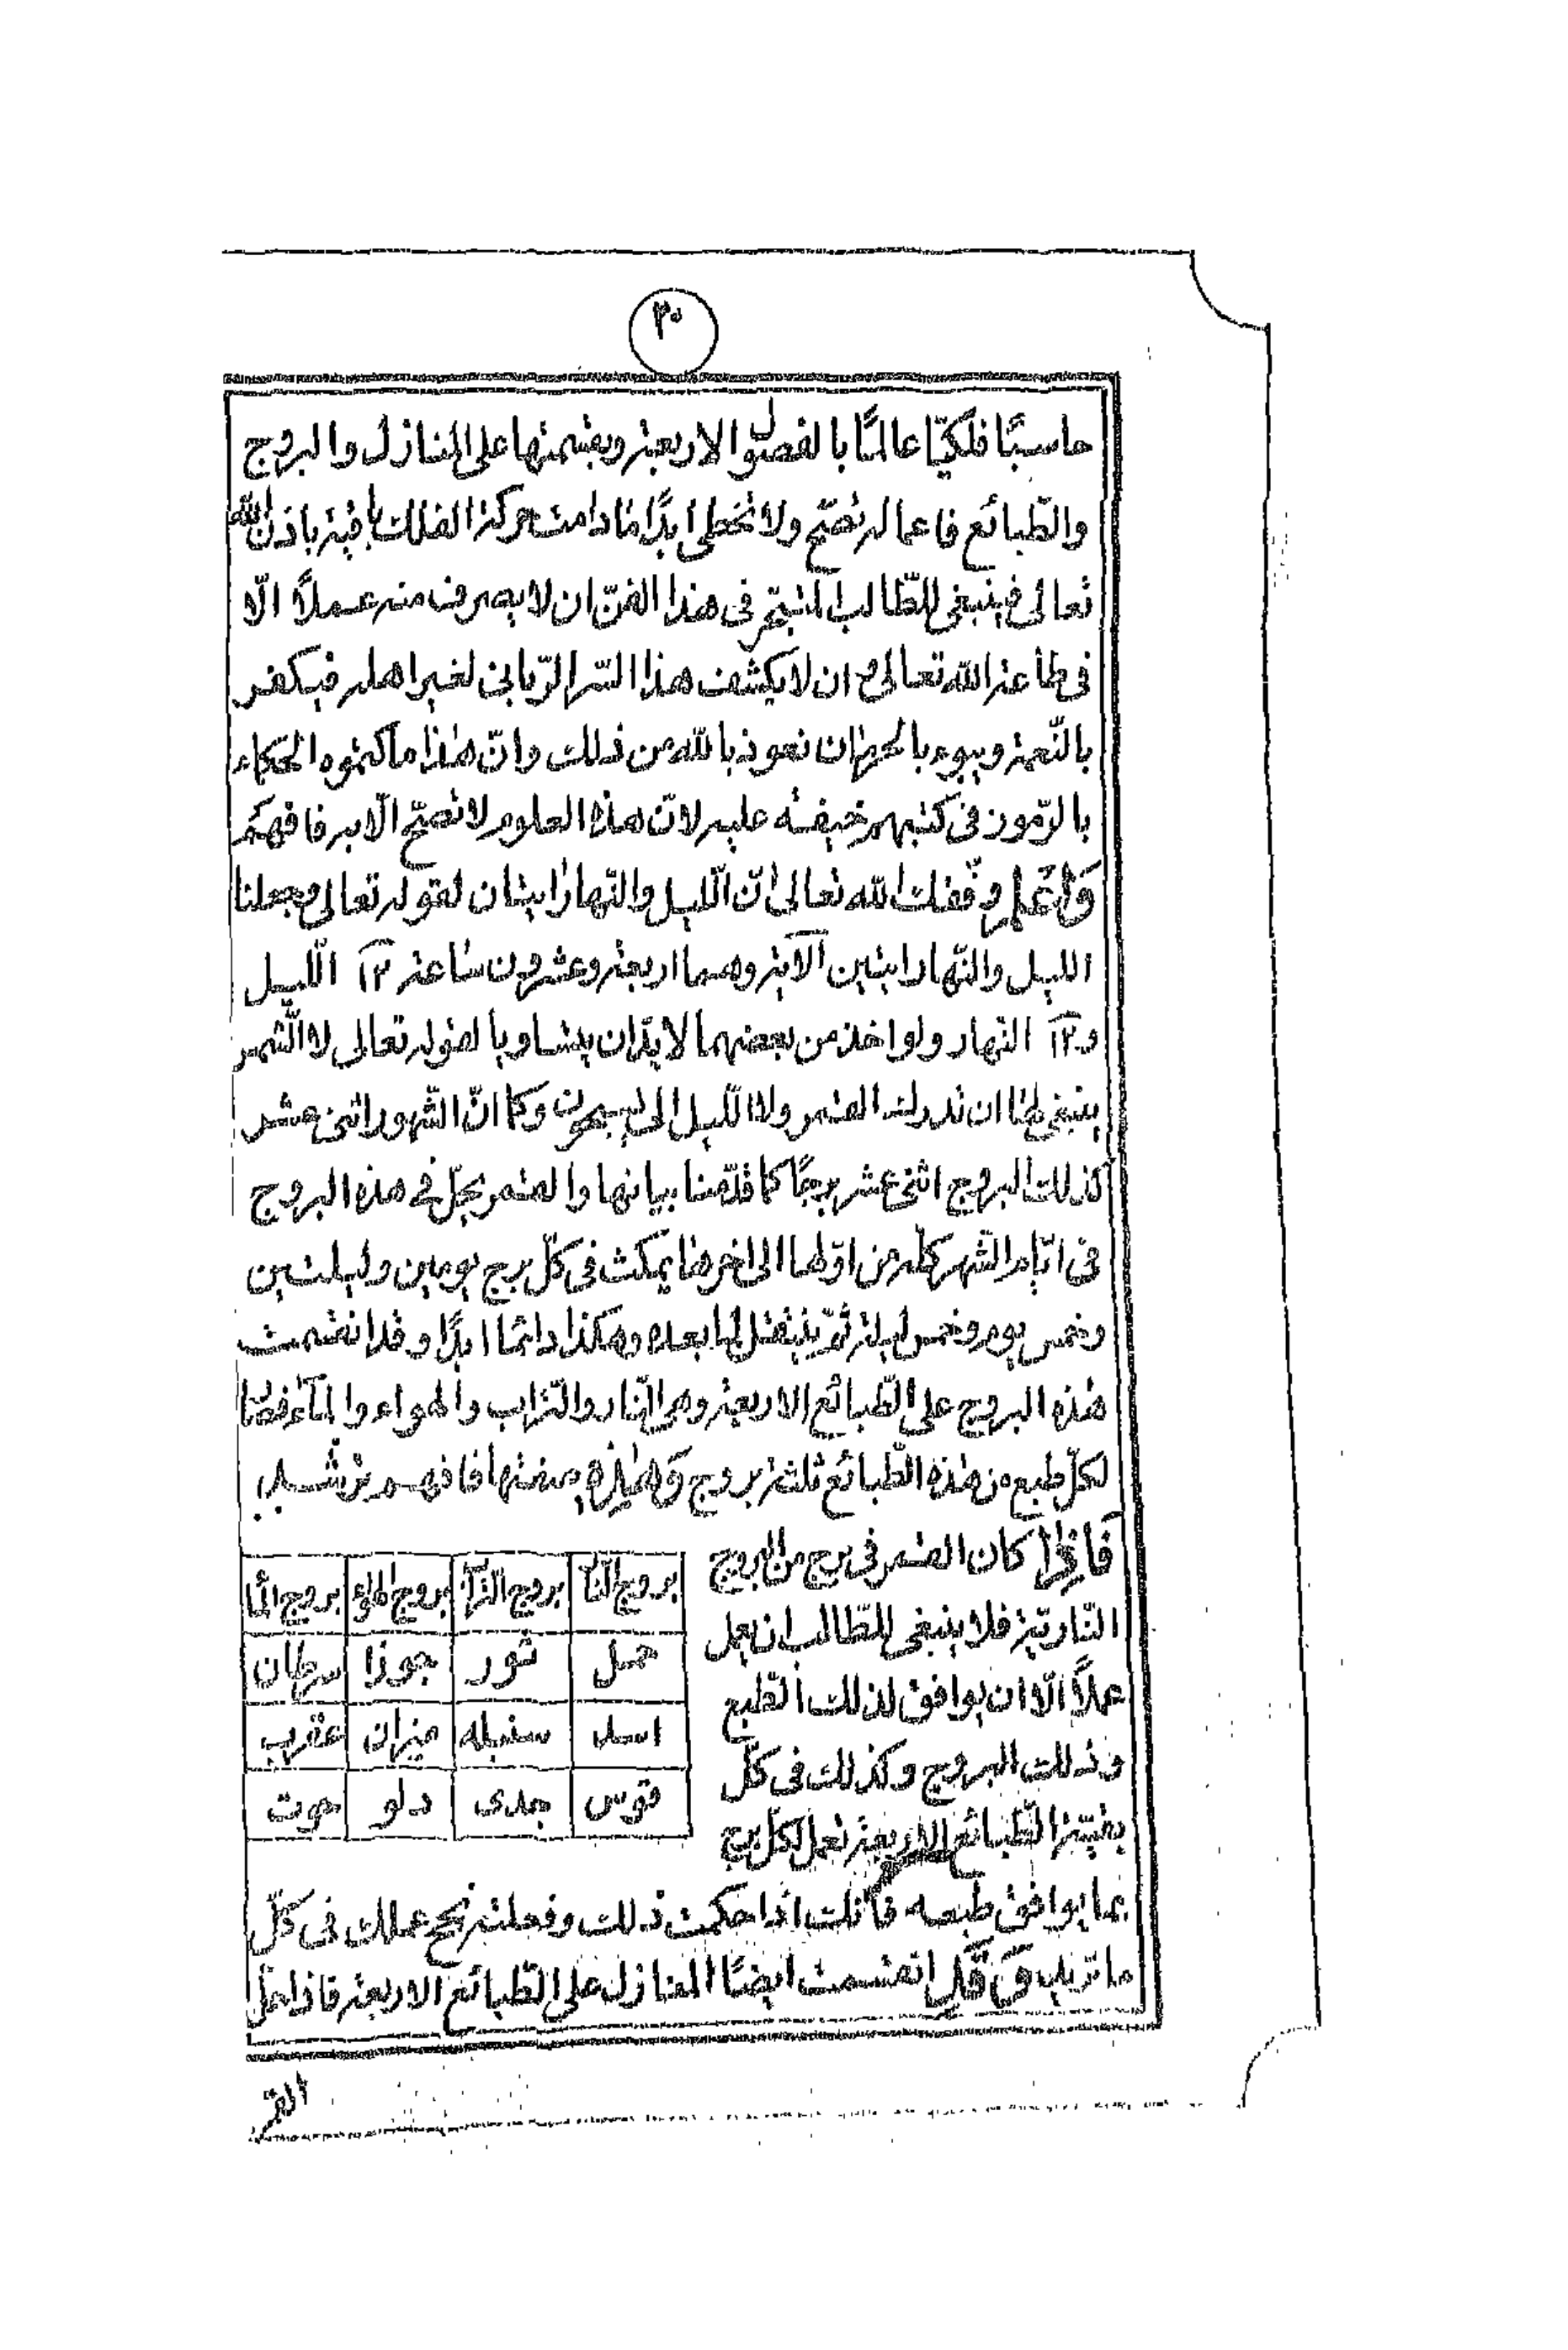 ٣٠
حاسبًا فلكيًّا عالمًا بالفصول الاربعة وبقسمتها على المنازل والبروج
والطّبائع فاعماله تصحّ ولا تخطى ابدًا ما دامت حركة الفلك باقية باذن الله
تعالى فينبغى للطّالب المتبحّر فى هذا الفنّ ان لا يصرف منه عملاً الّا
فى طاعة الله تعالى و ان لا يكشف هذا السّر الرّبانى لغير اهله فيكفر
بالنّعمة ويبوء بالحرمان نعوذ بالله من ذلك وانّ هذا ما كتموه الحكاء
بالرّموز فى كتبهم خيفة عليه لانّ هذه العلوم لا تصحّ الّا به فافهم
وَاعْلَم وفّقك الله تعالى انّ اللّيل والنّهار ايتان لقوله تعالى وجعلنا
الليل والنّهار ايتين الآية وهما اربعة وعشرون ساعة ١٢ اللّيل
و١٢ النّهار ولو اخذ من بعضهما لا بدّ ان يتساويا لقوله تعالى لا الشّمس
ينبغى لها ان تدرك القمر ولا اللّيل الى يجون وكما انّ الشّهور اثنى عشر
كذلك البروج اثنى عشر برجًا كما قدّمنا بيانها والقمر يحلّ فى هذه البروج
فى ايّام الشّهر كلّه من اوّلها الى اخرها يمكث فى كلّ برج يومين وليلتين
وخمس يوم وخمس ليلة ثمّ ينتقل لما بعده وهكذا دائمًا ابدًا وقد انقسمت
هذه البروج على الطّبائع الاربعة وهى النّار والتّراب والهواء والمآء فصار
لكلّ طبع من هذه الطّبائع ثلثة بروج وَهٰذِهِ صفتها فافهم ترشد
فَاِذَا كان القمر فى برج من البروج
النّاريّة فلا ينبغى للطّالب ان يعمل
عملاً الّا ان يوافق لذلك الطّبع
وذلك البروج وكذلك فى كلّ
بقيّة الطّبائع الاربعة تعمل لكلّ برج
بروج النآ بروج الترآ بروج الهوا بروج الما
حمل ثور جوزا سرطان
اسد سنبله ميزان عقرب
قوس جدى دلو حوت
بما يوافق طبعه فانّك اذا حكمت ذلك وفعلته نجح عملك فى كلّ
ما تريد وَقَدِ انقسمت ايضًا المنازل على الطّبائع الاربعة فاذا حلّ
القمر